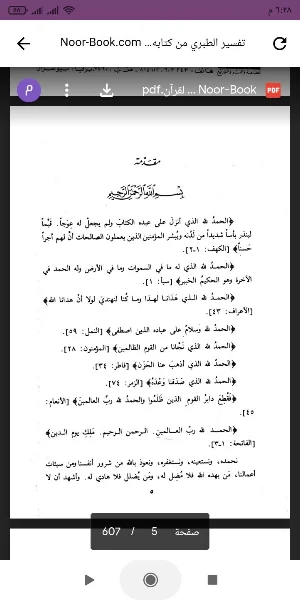 ٦:٢٨ م
Noor-Book.com ...تفسير الطبري من كتابه
Noor-Book ... لقرآن.pdf
PDF
مقدمة
بسم الله الرحمن الرحيم
﴿الحمدُ لله الذي أنزلَ على عبده الكتابَ ولم يجعل له عِوَجاً. قَيِّماً
لينذر بأساً شديداً من لَدُنْه ويُبشر المؤمنين الذين يعملون الصالحات أنَّ لهم أجراً
حَسَناً﴾ [الكهف: ١-٢].
﴿الحمدُ لله الذي له ما في السموات وما في الأرض وله الحمد في
الآخرة وهو الحكيمُ الخبير﴾ [سبأ: ١].
﴿الحمدُ لله الذي هَدَانا لهذا وما كُنَّا لنهتديَ لولا أنْ هدانا الله﴾
[الأعراف: ٤٣].
﴿الحمدُ لله وسلامٌ على عباده الذين اصطفى﴾ [النمل: ٥٩].
﴿الحمدُ لله الذي نَجَّانا من القوم الظالمين﴾ [المؤمنون: ٢٨].
﴿الحمدُ لله الذي أذهبَ عنا الحَزَن﴾ [فاطر: ٣٤].
﴿الحمدُ لله الذي صَدَقنا وَعْدَهُ﴾ [الزمر: ٧٤].
﴿فَقُطِعَ دابرُ القومِ الذين ظَلَمُوا والحمدُ لله ربِّ العالمينَ﴾ [الأنعام:
٤٥].
﴿الحمد لله ربِّ العالمين. الرحمن الرحيم. مَلِكِ يومِ الدين﴾
[الفاتحة: ١-٣].
نحمده، ونستعينه، ونستغفره، ونعوذ بالله من شرور أنفسنا ومن سيئات
أعمالنا، مَن يهده الله فلا مُضِل له، ومَن يُضلل فلا هادي له. وأشهد أن لا
٥
صفحة 5 / 607